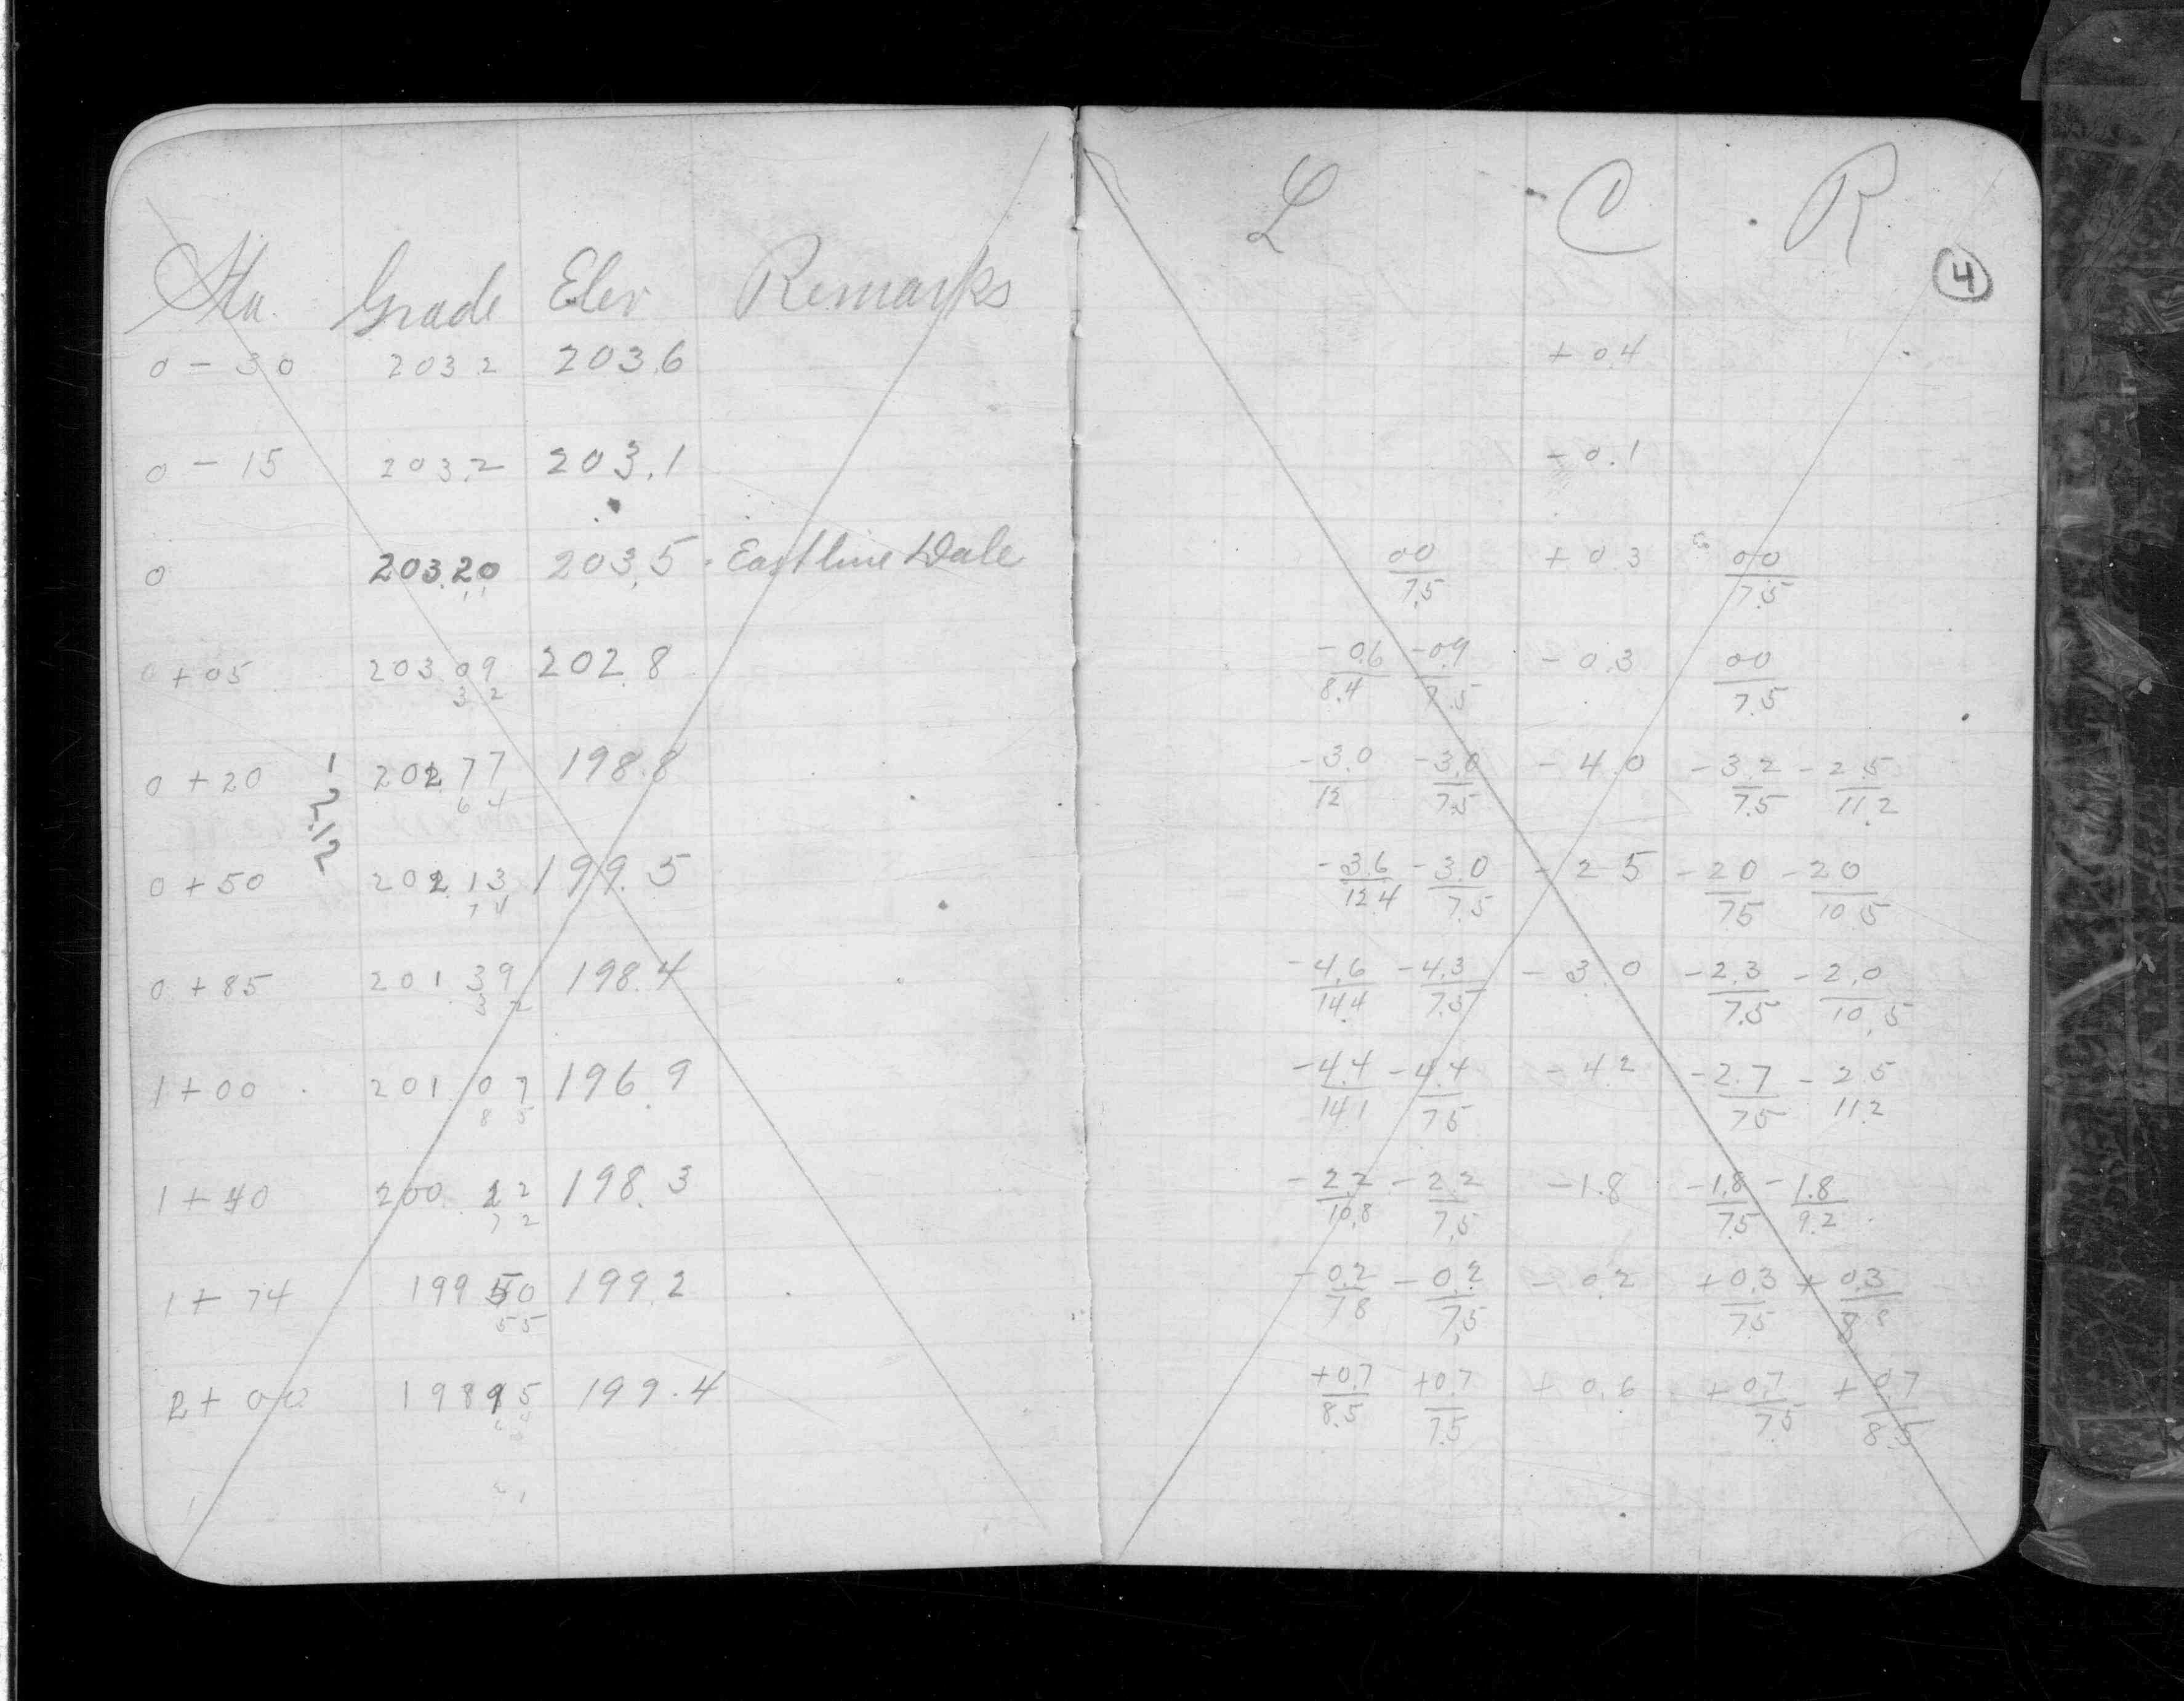 Sta. Grade Elev Remarks
0 - 30 203.2 203.6
0 - 15 203.2 203.1
0 203.20 203.5 - East line Dale
0 + 05 203.09 202.8
3 2
0 + 20 202.77 198.8
6 4
-2.12
0 + 50 202.13 199.5
7 4
0 + 85 201.39 198.4
3 2
1 + 00 201.07 196.9
8 5
1 + 40 200.22 198.3
7 2
1 + 74 199.50 199.2
5 5
2 + 00 198.95 199.4
L C R
4
+ 0.4
- 0.1
00 + 0.3 00
7.5 7.5
- 0.6 - 0.9 - 0.3 00
8.4 7.5 7.5
- 3.0 - 3.0 - 4.0 - 3.2 - 2.5
12 7.5 7.5 11.2
- 3.6 - 3.0 - 2.5 - 2.0 - 2.0
12.4 7.5 7.5 10.5
- 4.6 - 4.3 - 3.0 - 2.3 - 2.0
14.4 7.5 7.5 10.5
- 4.4 - 4.4 - 4.2 - 2.7 - 2.5
14.1 7.5 7.5 11.2
- 2.2 - 2.2 - 1.8 - 1.8 - 1.8
10.8 7.5 7.5 9.2
- 0.2 - 0.2 - 0.2 + 0.3 + 0.3
7.8 7.5 7.5 8.8
+ 0.7 + 0.7 + 0.6 + 0.7 + 0.7
8.5 7.5 7.5 8.5